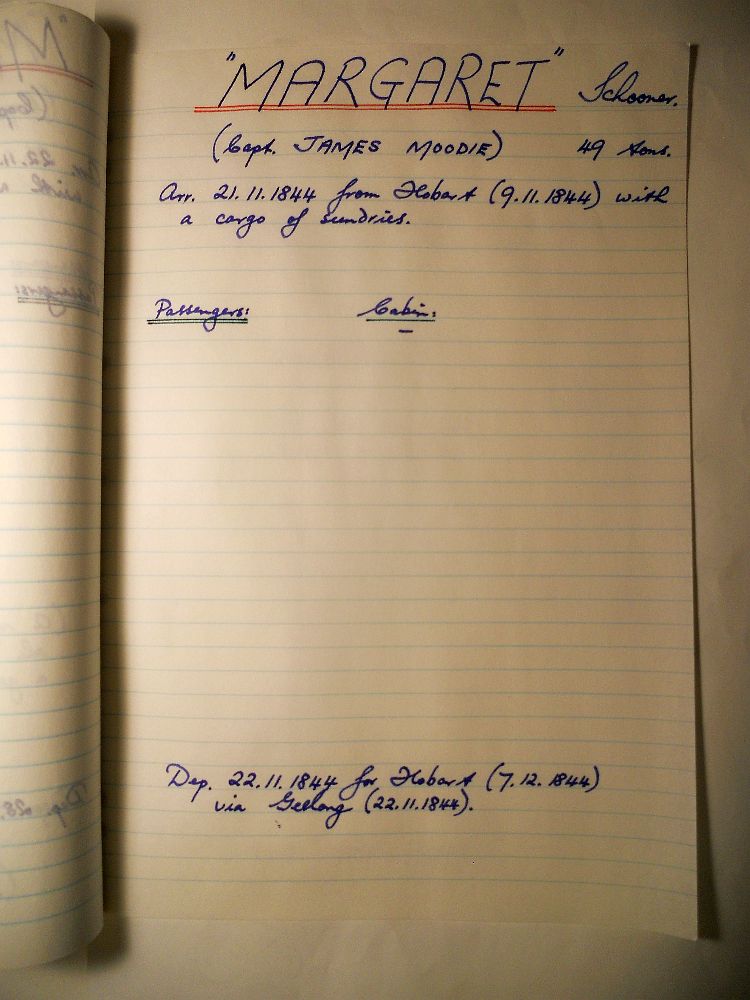 "MARGARET" Schooner.
(Capt. JAMES MOODIE) 49 tons.
Arr. 21.11.1844 from Hobart (9.11.1844) with
a cargo of sundries.
Passengers: Cabin:
–
Dep. 22.11.1844 for Hobart (7.12.1844)
via Geelong (22.11.1844).